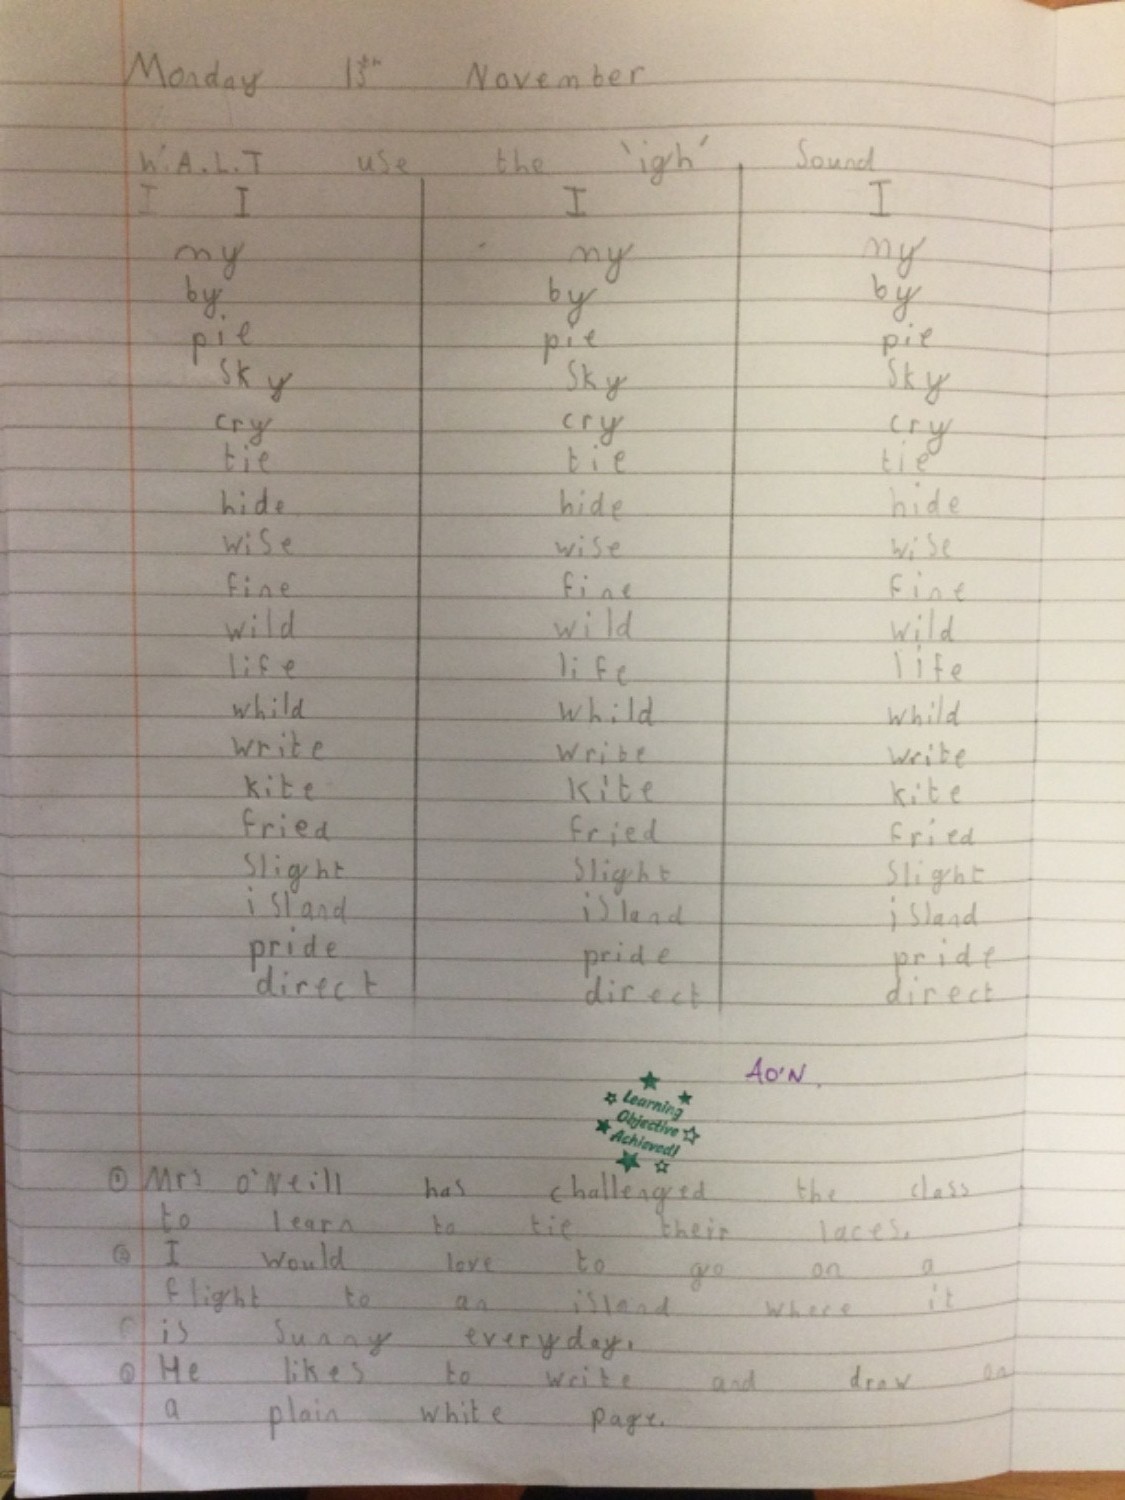 Monday 13th November
W.A.L.T use the 'igh' Sound
I I I
my my my
by by by
pie pie pie
Sky Sky Sky
cry cry cry
tie tie tie
hide hide hide
wise wise wise
fine fine fine
wild wild wild
life life life
whild whild whild
write write write
kite kite kite
fried fried fried
Slight Slight Slight
island island island
pride pride pride
direct direct direct
AO'N.
Learning
Objective
Achieved!
① Mrs O'Neill has challenged the class
to learn to tie their laces.
② I would love to go on a
flight to an island where it
is Sunny everyday.
③ He likes to write and draw on
a plain white page.